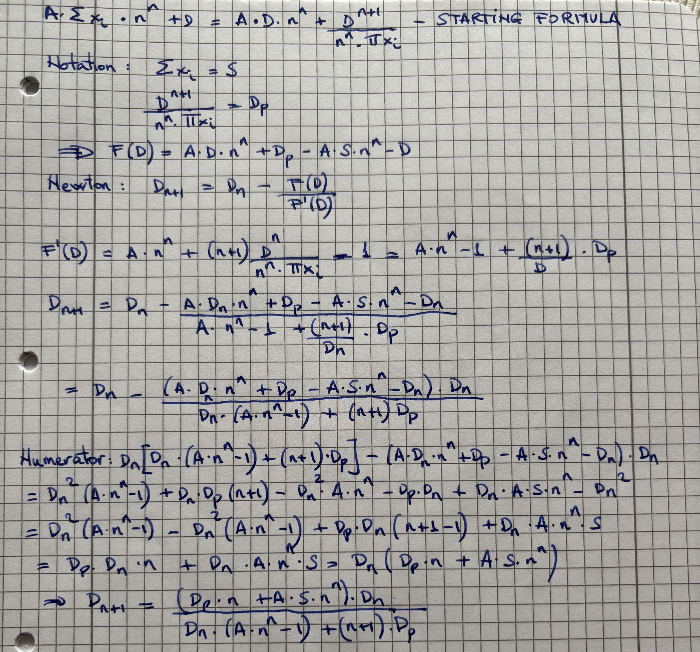 A·Σxᵢ·nⁿ + D = A·D·nⁿ + Dⁿ⁺¹/(nⁿ·Πxᵢ) - STARTING FORMULA
Notation: Σxᵢ = S
Dⁿ⁺¹/(nⁿ·Πxᵢ) = Dp
⇒ F(D) = A·D·nⁿ + Dp - A·S·nⁿ - D
Newton: Dn+1 = Dn - F(D)/F'(D)
F'(D) = A·nⁿ + (n+1) Dⁿ/(nⁿ·Πxᵢ) - 1 = A·nⁿ - 1 + (n+1)/D · Dp
Dn+1 = Dn - (A·Dn·nⁿ + Dp - A·S·nⁿ - Dn)/(A·nⁿ - 1 + (n+1)/Dn · Dp)
= Dn - (A·Dn·nⁿ + Dp - A·S·nⁿ - Dn)·Dn/(Dn·(A·nⁿ-1) + (n+1)Dp)
Numerator: Dn[Dn·(A·nⁿ-1) + (n+1)·Dp] - (A·Dn·nⁿ + Dp - A·S·nⁿ - Dn)·Dn
= Dn²(A·nⁿ-1) + Dn·Dp(n+1) - Dn²·A·nⁿ - Dp·Dn + Dn·A·S·nⁿ - Dn²
= Dn²(A·nⁿ-1) - Dn²(A·nⁿ-1) + Dp·Dn(n+1-1) + Dn·A·nⁿ·S
= Dp·Dn·n + Dn·A·nⁿ·S = Dn(Dp·n + A·S·nⁿ)
⇒ Dn+1 = (Dp·n + A·S·nⁿ)·Dn/(Dn·(A·nⁿ-1) + (n+1)·Dp)